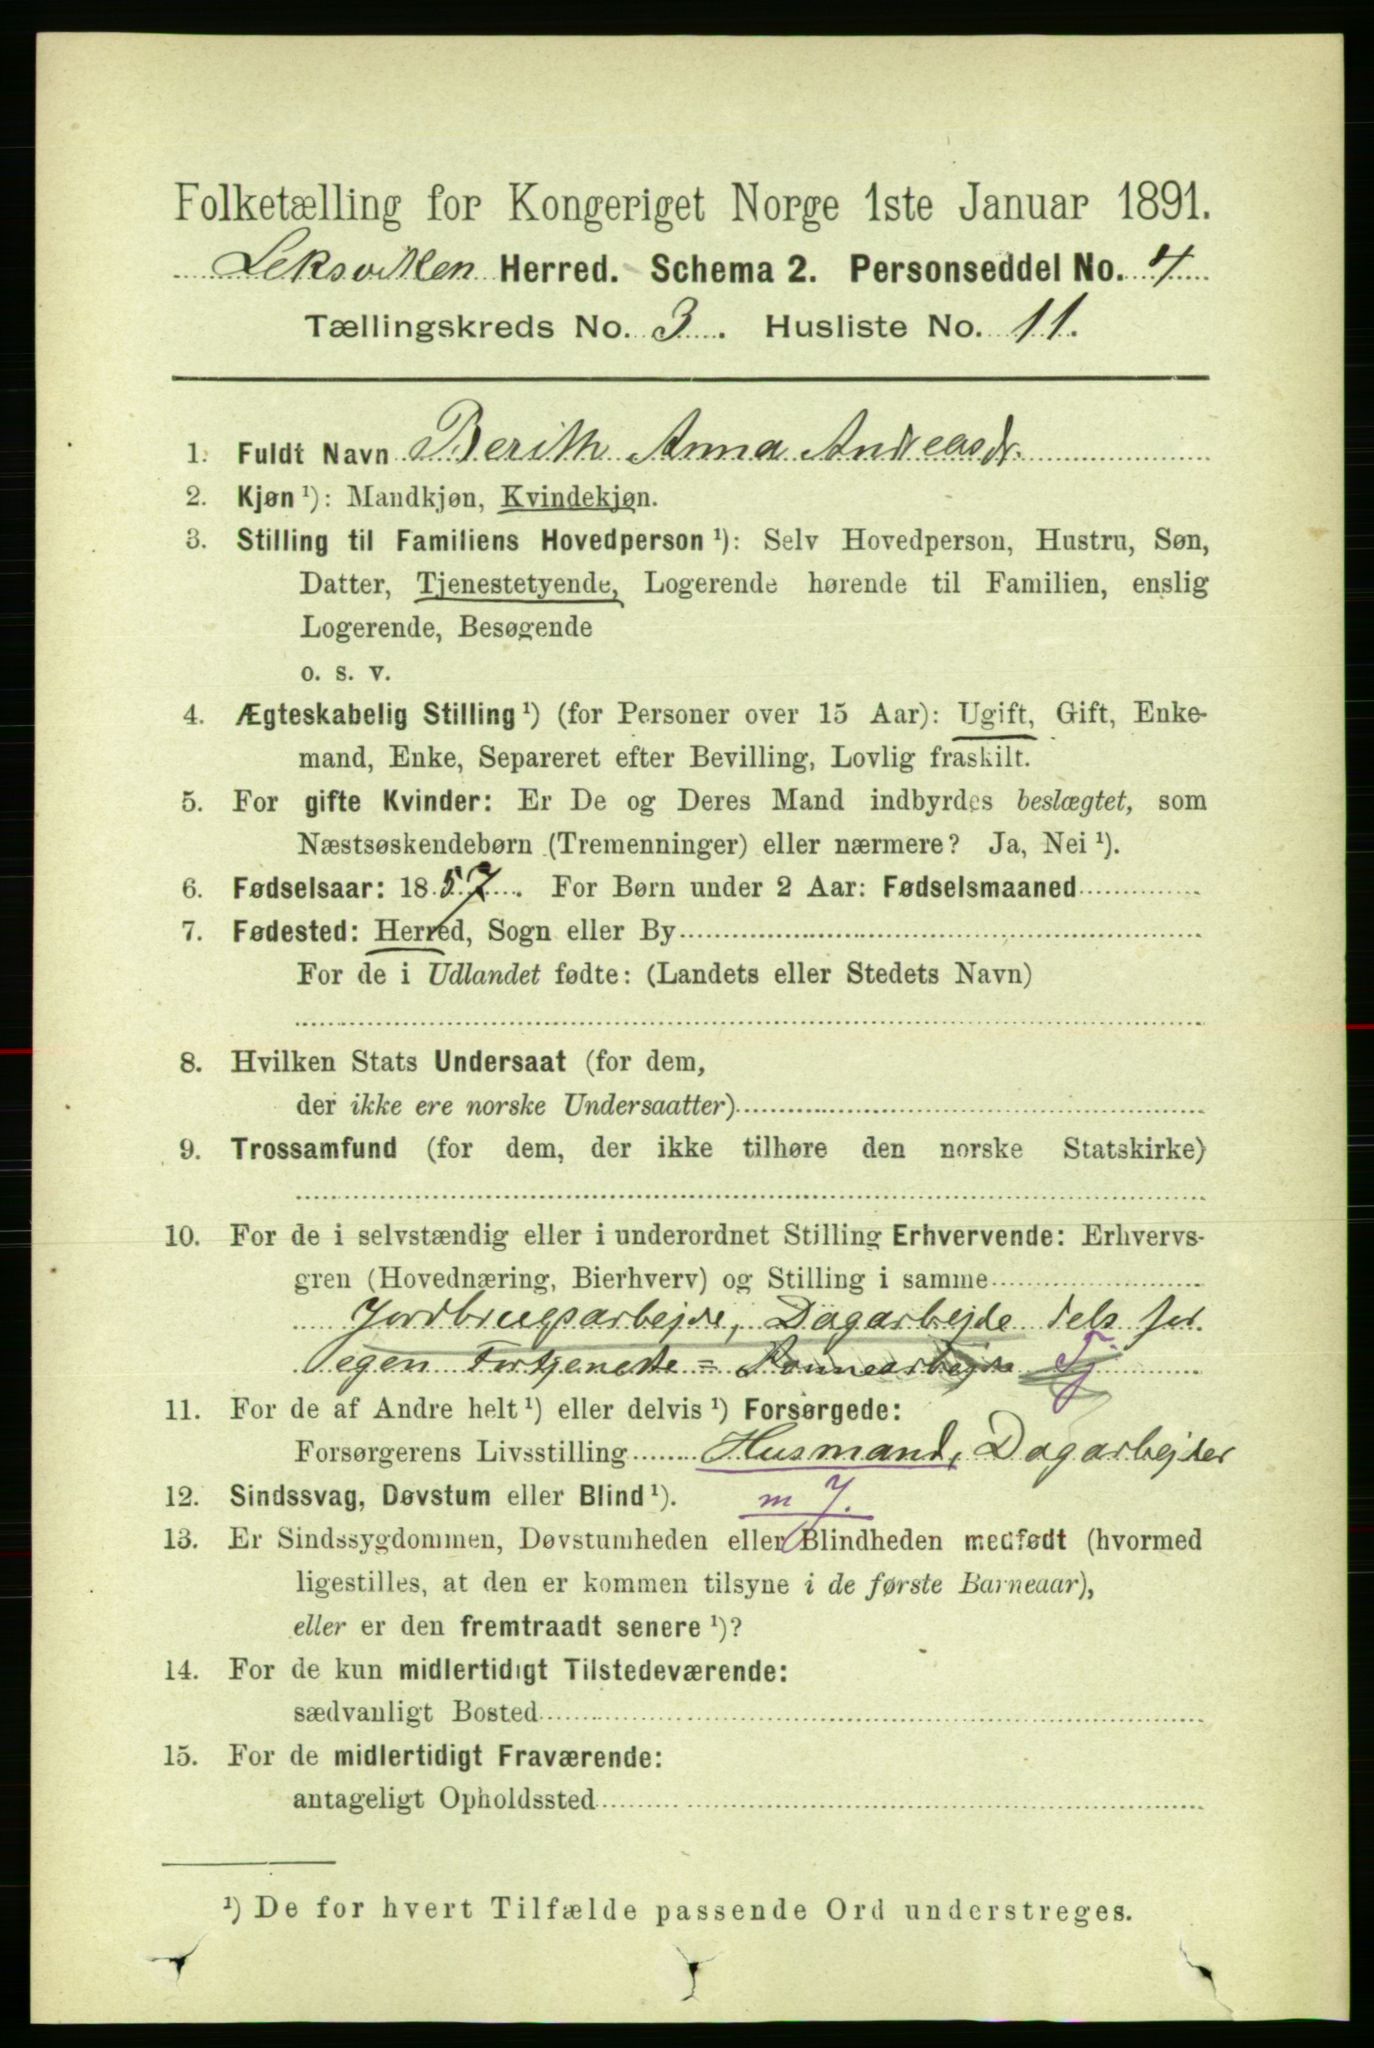 Folketælling for Kongeriget Norge 1ste Januar 1891.
Leksviken Herred. Schema 2. Personseddel No. 4
Tællingskreds No. 3. Husliste No. 11.
1. Fuldt Navn Berith Anna Andreasdr.
2. Kjøn ¹): Mandkjøn, Kvindekjøn.
3. Stilling til Familiens Hovedperson ¹): Selv Hovedperson, Hustru, Søn,
Datter, Tjenestetyende, Logerende hørende til Familien, enslig
Logerende, Besøgende
o. s. v.
4. Ægteskabelig Stilling ¹) (for Personer over 15 Aar): Ugift, Gift, Enke-
mand, Enke, Separeret efter Bevilling, Lovlig fraskilt.
5. For gifte Kvinder: Er De og Deres Mand indbyrdes beslægtet, som
Næstsøskendebørn (Tremenninger) eller nærmere? Ja, Nei ¹).
6. Fødselsaar: 1857. For Børn under 2 Aar: Fødselsmaaned
7. Fødested: Herred, Sogn eller By
For de i Udlandet fødte: (Landets eller Stedets Navn)
8. Hvilken Stats Undersaat (for dem,
der ikke ere norske Undersaatter)
9. Trossamfund (for dem, der ikke tilhøre den norske Statskirke)
10. For de i selvstændig eller i underordnet Stilling Erhvervende: Erhvervs-
gren (Hovednæring, Bierhverv) og Stilling i samme
Jordbrugsarbejde, Dagarbejde dels for
egen Fortjeneste = Tj
11. For de af Andre helt ¹) eller delvis ¹) Forsørgede:
Forsørgerens Livsstilling Husmand, Dagarbejder
12. Sindssvag, Døvstum eller Blind ¹). m J.
13. Er Sindssygdommen, Døvstumheden eller Blindheden medfødt (hvormed
ligestilles, at den er kommen tilsyne i de første Barneaar),
eller er den fremtraadt senere ¹)?
14. For de kun midlertidigt Tilstedeværende:
sædvanligt Bosted
15. For de midlertidigt Fraværende:
antageligt Opholdssted
¹) De for hvert Tilfælde passende Ord understreges.